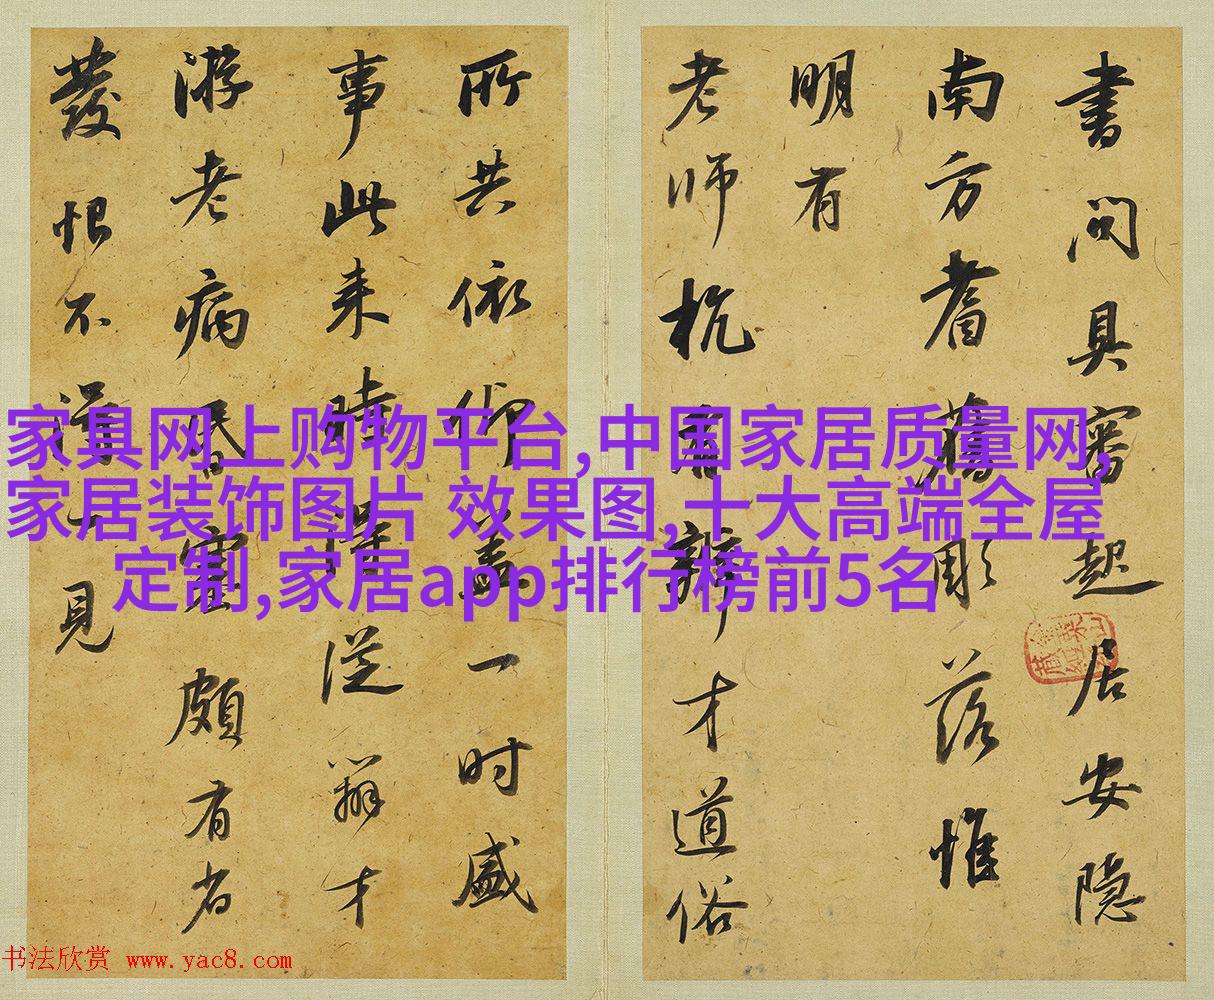 書問具審起居安隱
南方耆舊彫落惟
明有
老師杭有辨才道俗
所共依仰盖一時盛
事此来時得從辯才
游老病昏塞頗有省
發恨不得一見
家具网上购物平台,中国家居质量网,
家居装饰图片 效果图,十大高端全屋
定制,家居app排行榜前5名
书法欣赏 www.yac8.com